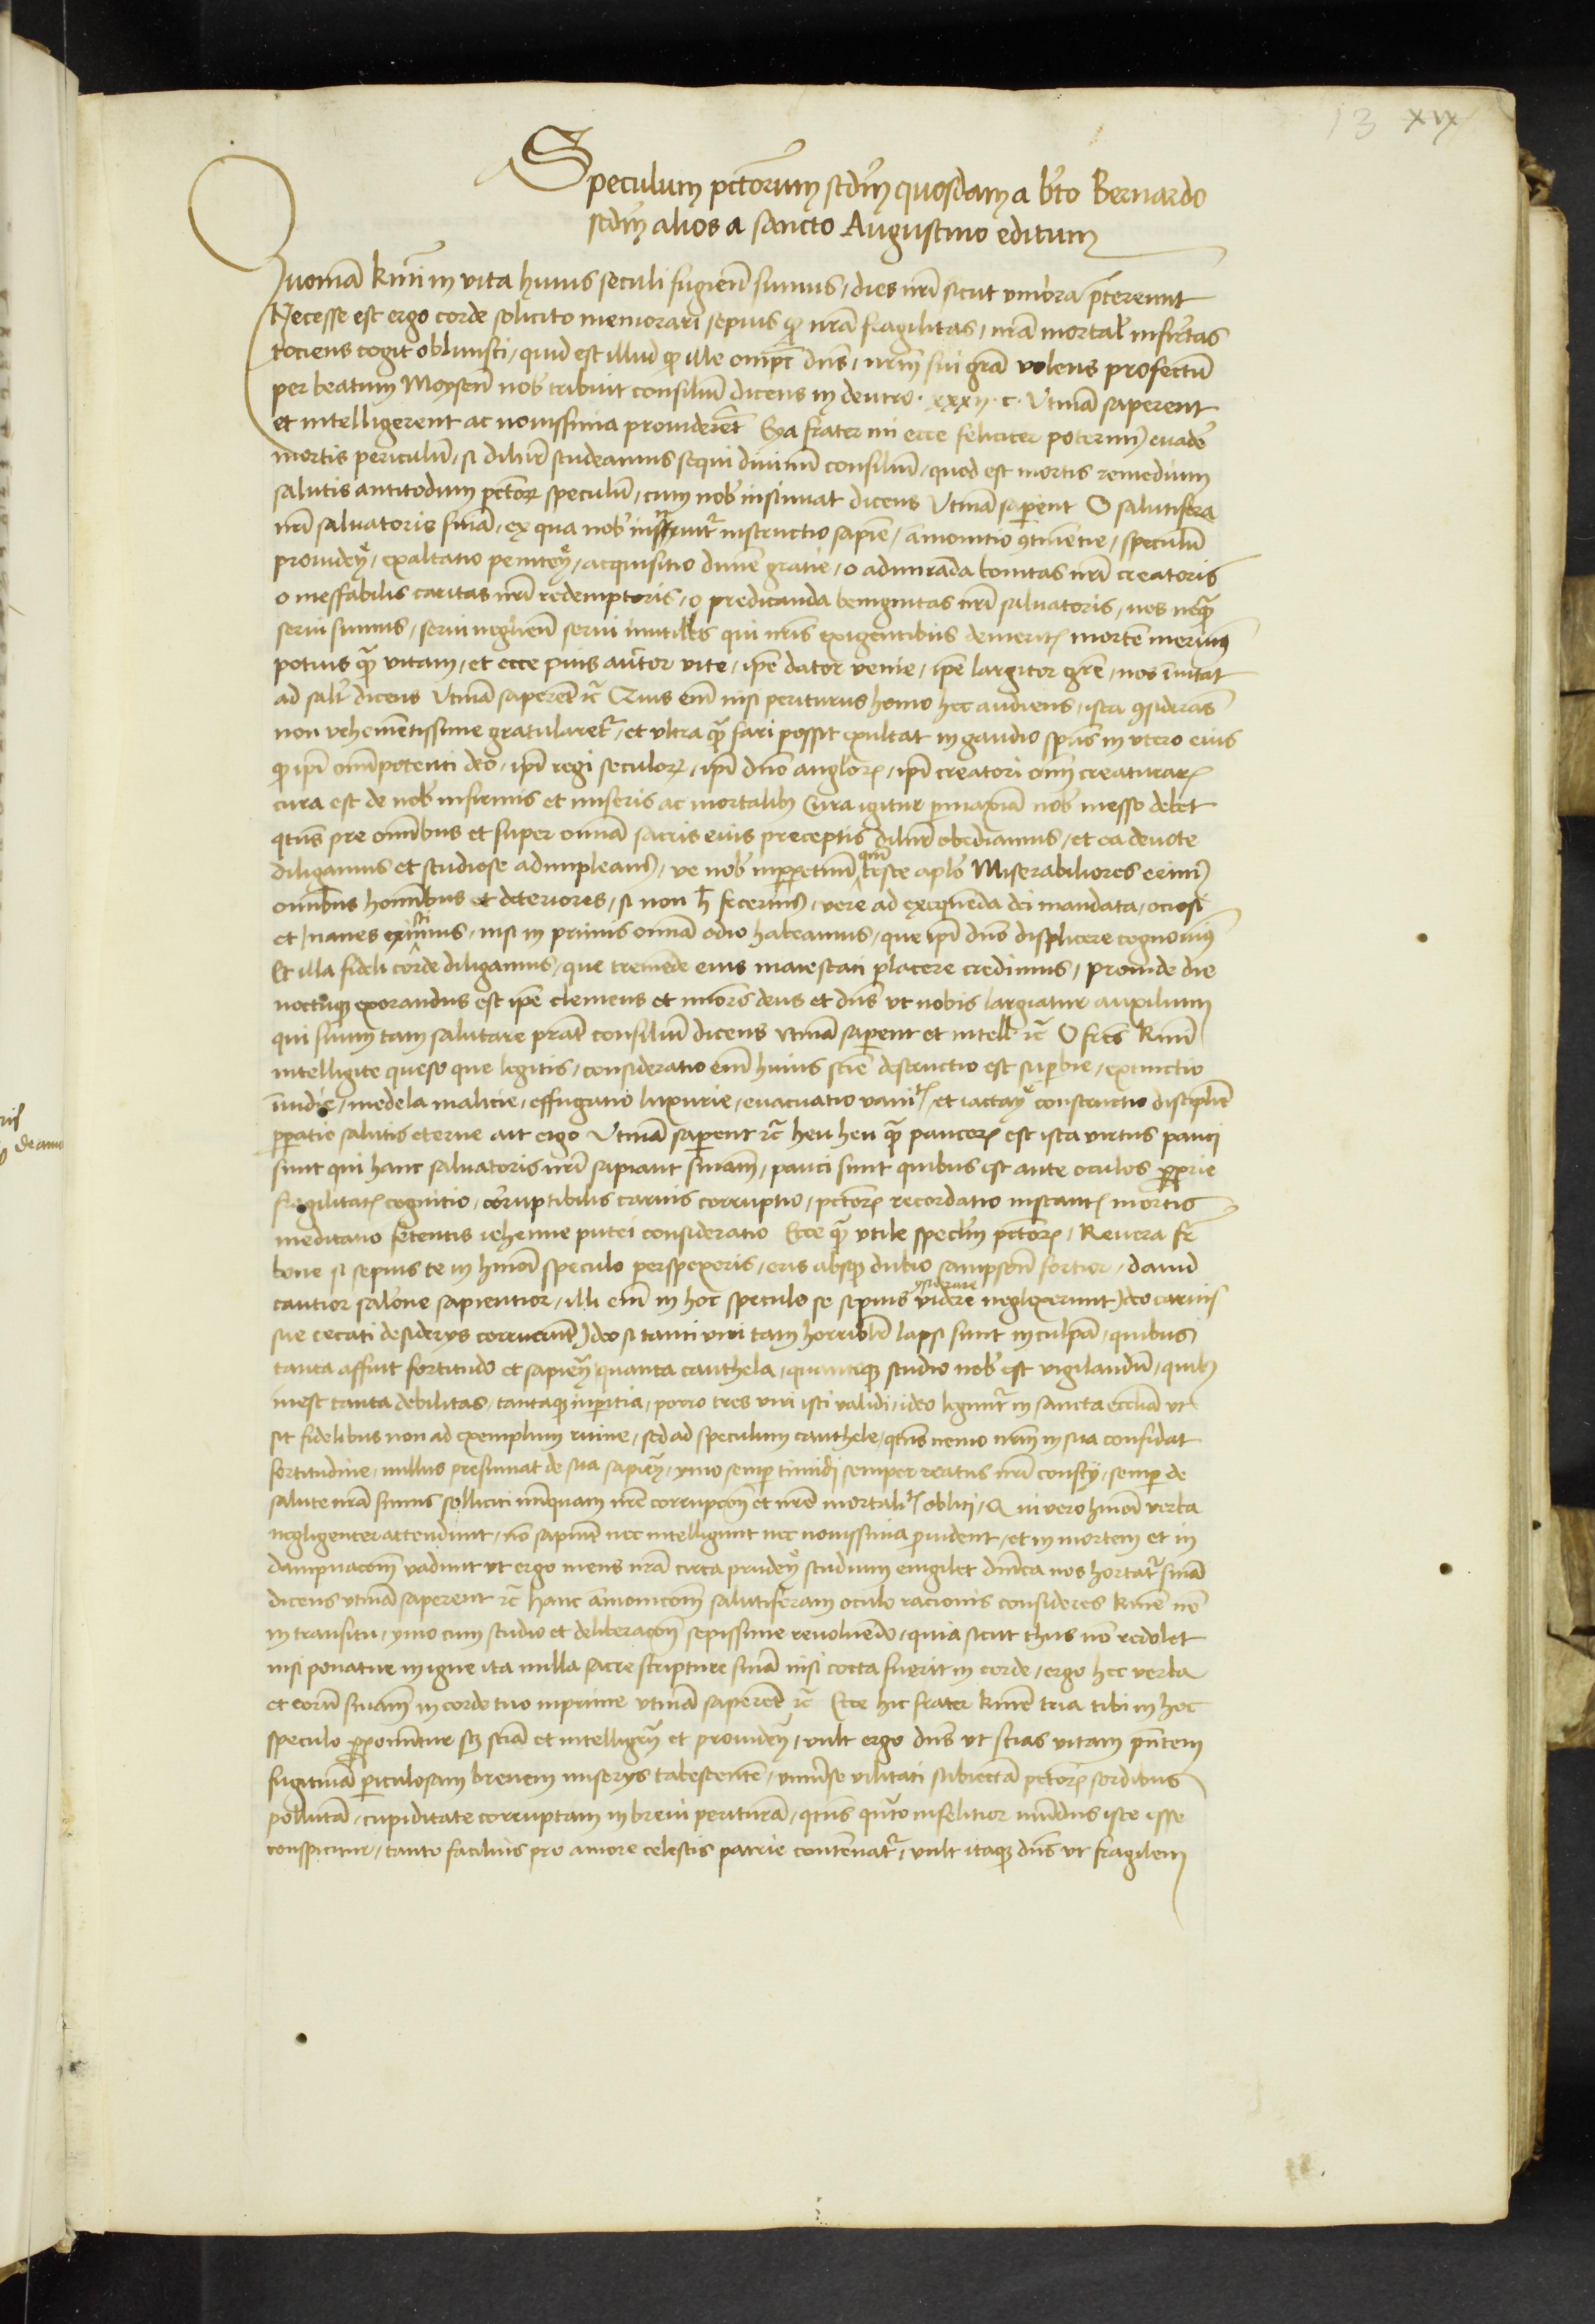 13 xix
Speculum pctorum scdm quosdam a bto Bernardo
scdm alios a sancto Augustino editum
Quoniā kmi in vita huius seculi fugien sumus / dies nri sicut umbra p̄tereunt
Necesse est ergo corde solicito memorari sepius q nrā fragilitas / nrā mortal infirtas
tociens cogit obliuisci / quid est illud q ille ompc dns / nrm sui grā volens profectū
per beatum Moysen nob tribuit consiliū dicens in deutro · xxxii · c · Utinā saperent
et intelligerent ac nouissima prouiderēt Eya frater mi ecce feliciter poterim) euade
mortis periculū / si dilir studeamus sequi diuinū consiliū / quod est mortis remedium
salutis antitodum pctor speculū / cum nob insinuat dicens Utinā sapent O salutifera
nri saluatoris sniā / ex qua nob instruit instructio sapie / āmonitio 9tinētie / speculū
prouidey / exaltatio penitey / acquisitio diuine gratie / o admirāda bonitas nri creatoris
o ineffabilis caritas nri redemptoris / o predicanda benignitas nri saluatoris / nos neq̄
serui sumus / serui neglien serui inutiles qui nris exigentibus demerit mortē meruim9
potius q̄ vitam / et ecce pius auctor vite / ipe dator venie / ipe largitor gre / nos inuitat
ad salt dicens Utinā saperēt rc Quis em nisi periturus homo hec audiens / ista 9siderās
non vehementissime gratularet / et ultra q̄ fari possit exultat in gaudio spūs in utero eius
q ipi omīpotenti deo / ipi regi seculor / ipi dno anglor / ipi creatori oim creaturar
cura est de nob infirmis et miseris ac mortalib) Cura igitur pmaxiā nob inesse debet
qtus pre omībus et super omniā sacris eius preceptis dilir obediamus / et ea deuote
diligamus et studiose adimpleam) / ne nob inppetuū qm teste aplo Miserabiliores erim)
omībus homībus et deteriores / si non h fecerim) / vere ad exequenda dei mandata / ociosi
et inanes existimus / nisi in primis omniā odio habeamus / que ipi dno displicere cognouim9
Et illa fideli corde diligamus / que tremēde eius maiestati placere credimus / proinde die
noctuq exorandus est ipe clemens et miors deus et dns ut nobis largiatur auxilium
qui suum tam salutare prat consiliū dicens utinā sapent et intell rc O frēs kmi
intelligite queso que legitis / consideratio em huius scie destructio est supbie / extinctio
īuidie / medela malicie / effugatio luxurie / euacuatio vanit / et iactay constructio disciplie
ppatio salutis eterne ait ergo Utinā sapent rc heu heu q̄ paucor est ista virtus pauci
sunt qui hanc saluatoris nri sapiant sniam / pauci sunt quibus est ante oculos pprie
fragilitat cognitio / corruptibilis carnis corruptio / pctor recordatio instant mortis
meditatio fetentis iehenne putei consideratio Ecce q̄ utile speclm pctor / Reuera fr
bone si sepius te in hmoi speculo perspexeris / eris absq dubio sampsoni fortior / dauid
cautior salone sapientior / illi em in hoc speculo se sepius 9siderare videre neglexerunt Ideo carnis
sue cecati desiderys corruerūt Ideo si tanti viri tam horriblr lapsi sunt in culpā / quibus
tanta affuit fortitudo et sapiey quanta cauthela / quantoq studio nob est vigilandū / quib)
inest tanta debilitas / tantaq inpitia / porro tres viri isti validi / ideo legunt in sancta ecclia ut
sit fidelibus non ad exemplum ruine / sed ad speculum cauthele / qtus nemo nrm in sua confidat
fortitudine / nullus presumat de sua sapiey / ymo semp timidi semper reatus nri conscij / semp de
salute nrā simus solliciti nūquam nre corrupcois et nre mortalit obliti / Qui vero hmoi verba
negligenter attendunt / no sapiūt nec intelligunt nec nouissima puident / et in mortem et in
dampnacōm vadunt ut ergo mens nrā circa prudey studium euigilet dnica nos hortat sniā
dicens utinā saperent rc hanc āmonicōm salutiferam oculo racionis consideres kme no
in transitu / ymo cum studio et deliberacōn sepissime reuoluendo / quia sicut thus no redolet
nisi ponatur in igne ita nulla sacre scripture sniā nisi cocta fuerit in corde / ergo hec verba
et eorū sniam in corde tuo inprime utinā saperēt rc Ecce hic frater kme tria tibi in hoc
speculo pponuntur sz sciā et intelligey et prouidey / vult ergo dns ut scias vitam pntem
fugitiuā piculosam breuem miserys tabescentē / uniuse vilitati subiectā pctor sordibus
pollutā / cupiditate corruptam in breui periturā / qtus qnto infelitior mūdus iste esse
conspicitur / tanto facilius pro amore celestis patrie contēnat / vult itaq dns ut fragilem